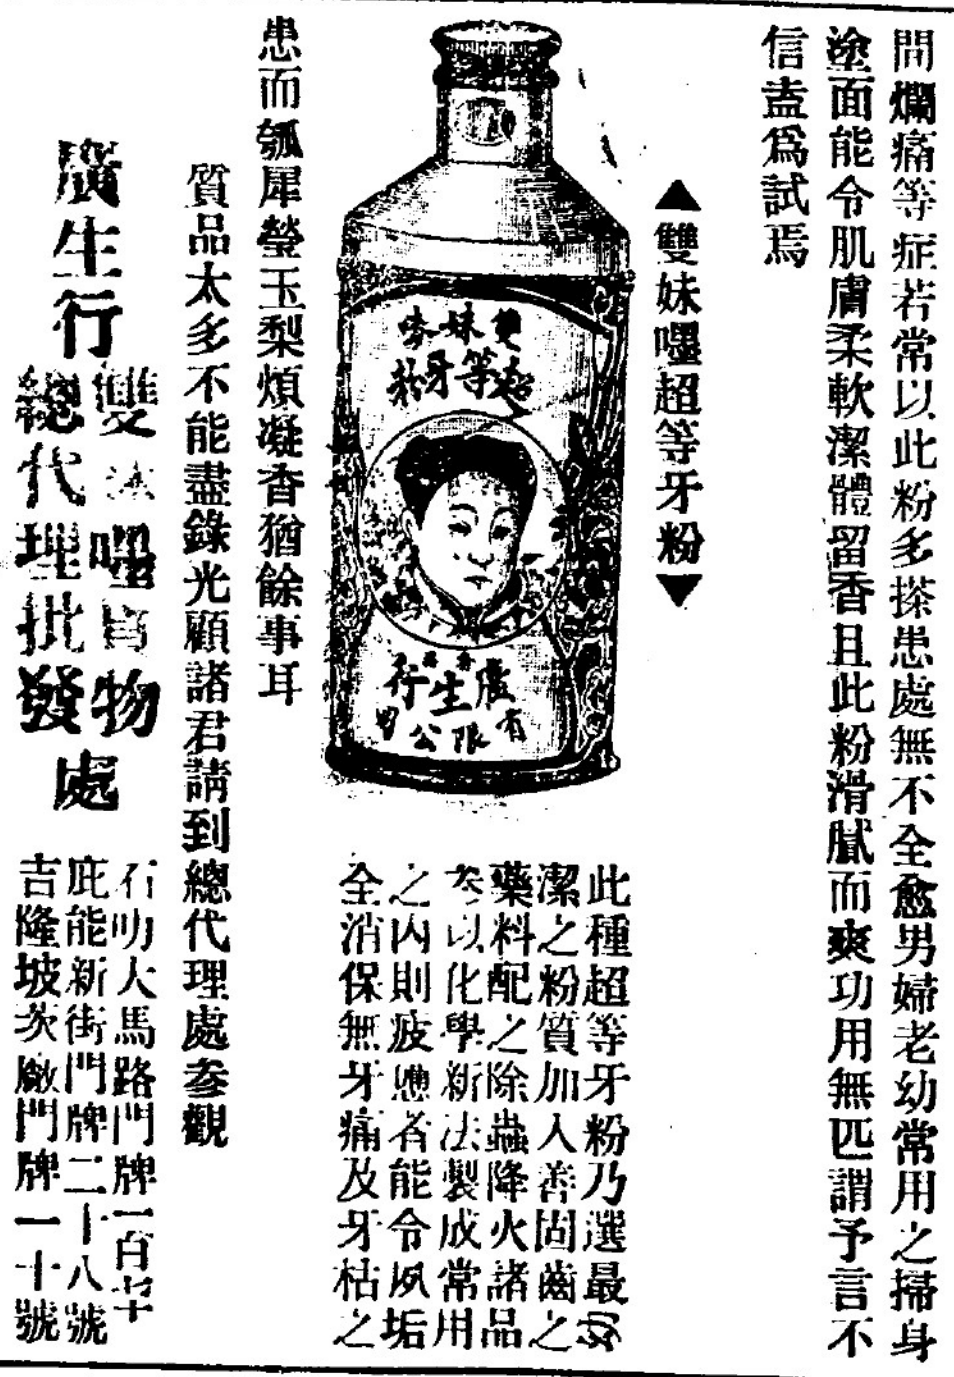 問爛痛等症若常以此粉多搽患處無不全愈男婦老幼常用之掃身
塗面能令肌膚柔軟潔體留香且此粉滑膩而爽功用無匹謂予言不
信盍爲試焉
▲雙妹嚜超等牙粉▼
雙妹嚜
超等牙粉
香港
廣生行
有限公司
此種超等牙粉乃選最
潔之粉質加入善固齒之
藥料配之除蟲降火諸品
參以化學新法製成常用
之內則疲憊者能令夙垢
全消保無牙痛及牙枯之
患而瓠犀瑩玉梨煩凝香猶餘事耳
質品太多不能盡錄光顧諸君請到總代理處參觀
廣生行
雙妹嚜貨物
總代理批發
處
石叻大馬路門牌一百七十
庇能新街門牌二十八號
吉隆坡茨廠門牌一十號